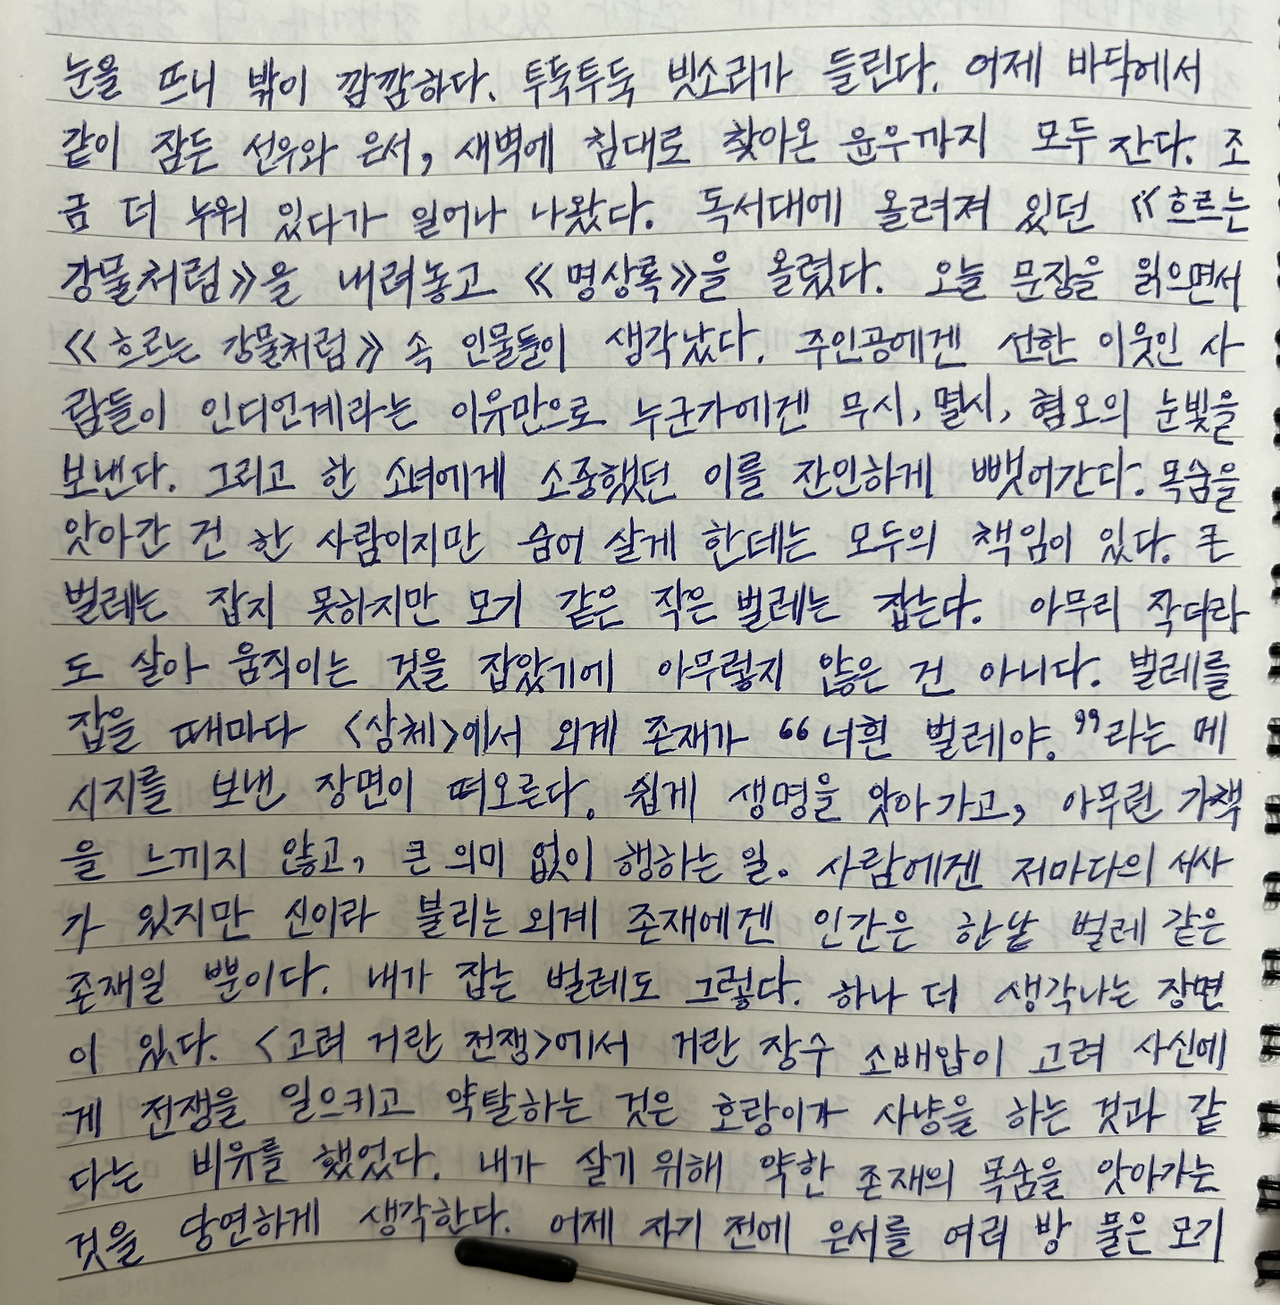 눈을 뜨니 밖이 깜깜하다. 투둑투둑 빗소리가 들린다. 어제 바닥에서
같이 잠든 선우와 은서, 새벽에 침대로 찾아온 윤우까지 모두 잔다. 조
금 더 누워 있다가 일어나 나왔다. 독서대에 올려져 있던 《흐르는
강물처럼》을 내려놓고 《명상록》을 올렸다. 오늘 문장을 읽으면서
《흐르는 강물처럼》 속 인물들이 생각났다. 주인공에겐 선한 이웃인 사
람들이 인디언계라는 이유만으로 누군가에겐 무시, 멸시, 혐오의 눈빛을
보낸다. 그리고 한 소녀에게 소중했던 이를 잔인하게 빼앗어간다. 목숨을
앗아간 건 한 사람이지만 숨어 살게 한데는 모두의 책임이 있다. 큰
벌레는 잡지 못하지만 모기 같은 작은 벌레는 잡는다. 아무리 작더라
도 살아 움직이는 것을 잡았기에 아무렇지 않은 건 아니다. 벌레를
잡을 때마다 <삼체>에서 외계 존재가 “너흰 벌레야.”라는 메
시지를 보낸 장면이 떠오른다. 쉽게 생명을 앗아가고, 아무런 가책
을 느끼지 않고, 큰 의미 없이 행하는 일. 사람에겐 저마다의 서사
가 있지만 신이라 불리는 외계 존재에겐 인간은 한낱 벌레 같은
존재일 뿐이다. 내가 잡는 벌레도 그렇다. 하나 더 생각나는 장면
이 있다. <고려 거란 전쟁>에서 거란 장수 소배압이 고려 사신에
게 전쟁을 일으키고 약탈하는 것은 호랑이가 사냥을 하는 것과 같
다는 비유를 했었다. 내가 살기 위해 약한 존재의 목숨을 앗아가는
것을 당연하게 생각한다. 어제 자기 전에 은서를 여러 방 물은 모기